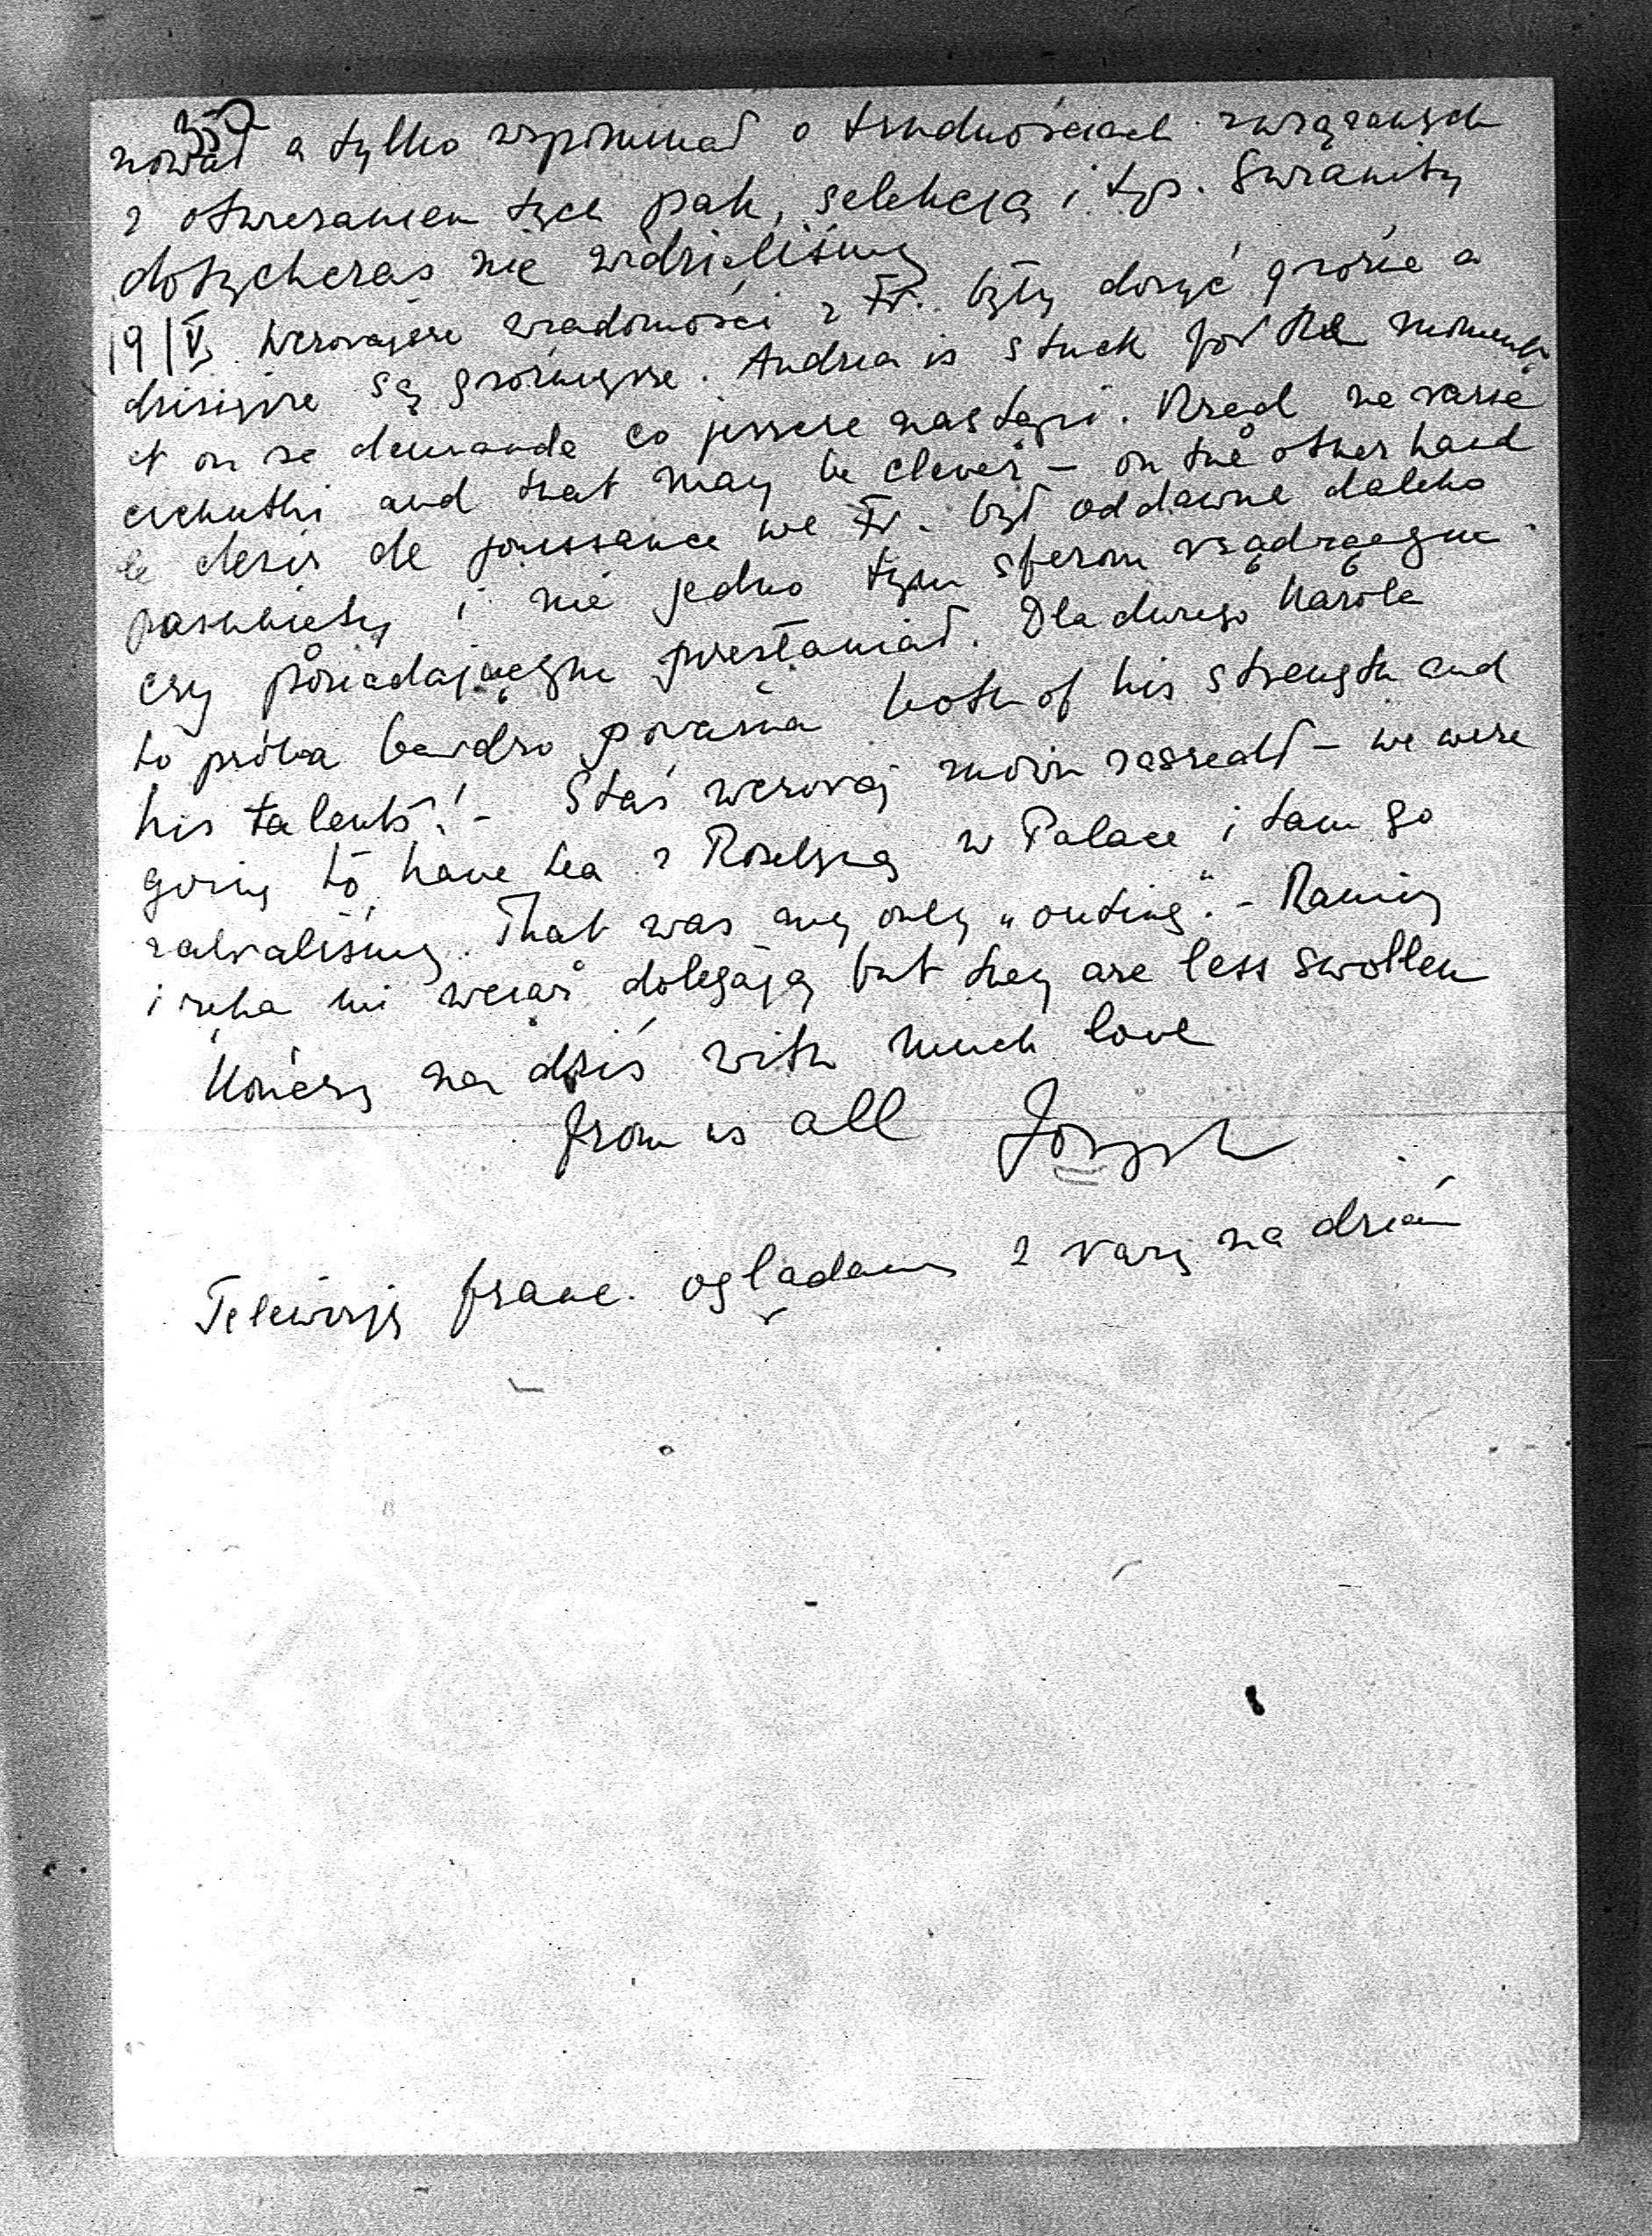 350
nował a tylko wspominał o trudnościach związanych
z otwieraniem tych pak, selekcją i tp.
dotychczas nie widzieliśmy
19/V. Wczorajsze wiadomości z Fr. były dosyć groźne a
dzisiejsze są groźniejsze. Andrea is stuck for the moment
et on se demande co jeszcze nastąpi. Rząd na razie
cichutki and that may be clever – on the other hand
le désir de jouissance we Fr. był oddawna daleko
posunięty i nie jedno tym sferom rządzącym
czy posiadającym przesłaniał. Dla dużego Karola
to próba bardzo poważna both of his strength and
his talents! – Staś wczoraj znów zaszedł – we were
going to have tea z w Palace i tam go
zabraliśmy. That was my only „outing". – Ramię
i ręka mi wciąż dolegają but they are less swollen
Kończę na dziś with much love
from us all Joseph
Telewizję franc. oglądamy 2 razy na dzień